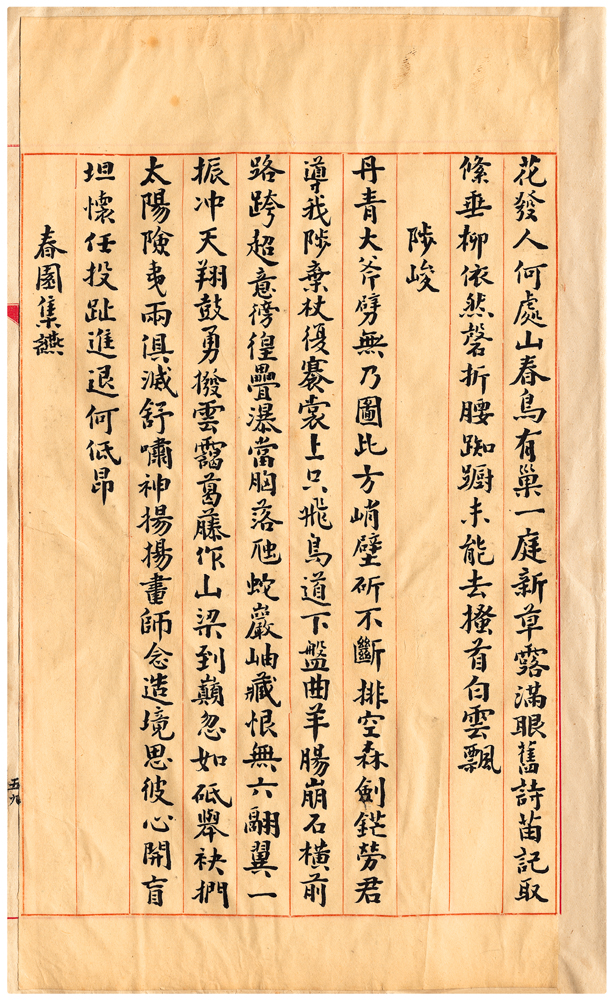 花發人何處山春鳥有巢一庭新草露滿眼舊詩苗記取
絛垂柳依然磬折腰踟躕未能去搔首白雲飄
陟峻
丹青大斧劈無乃圖此方峭壁斫不斷排空森劍鋩勞君
導我陟棄杖復褰裳上只飛鳥道下盤曲羊腸崩石橫前
路跨超意徬徨疊瀑當胸落虺蛇巖岫藏恨無六翮翼一
振冲天翔鼓勇撥雲靄葛藤作山梁到巔忽如砥舉袂捫
太陽險夷兩俱滅舒嘯神揚揚畫師念造境思彼心開盲
坦懷任投趾進退何低昂
春園集讌
五九